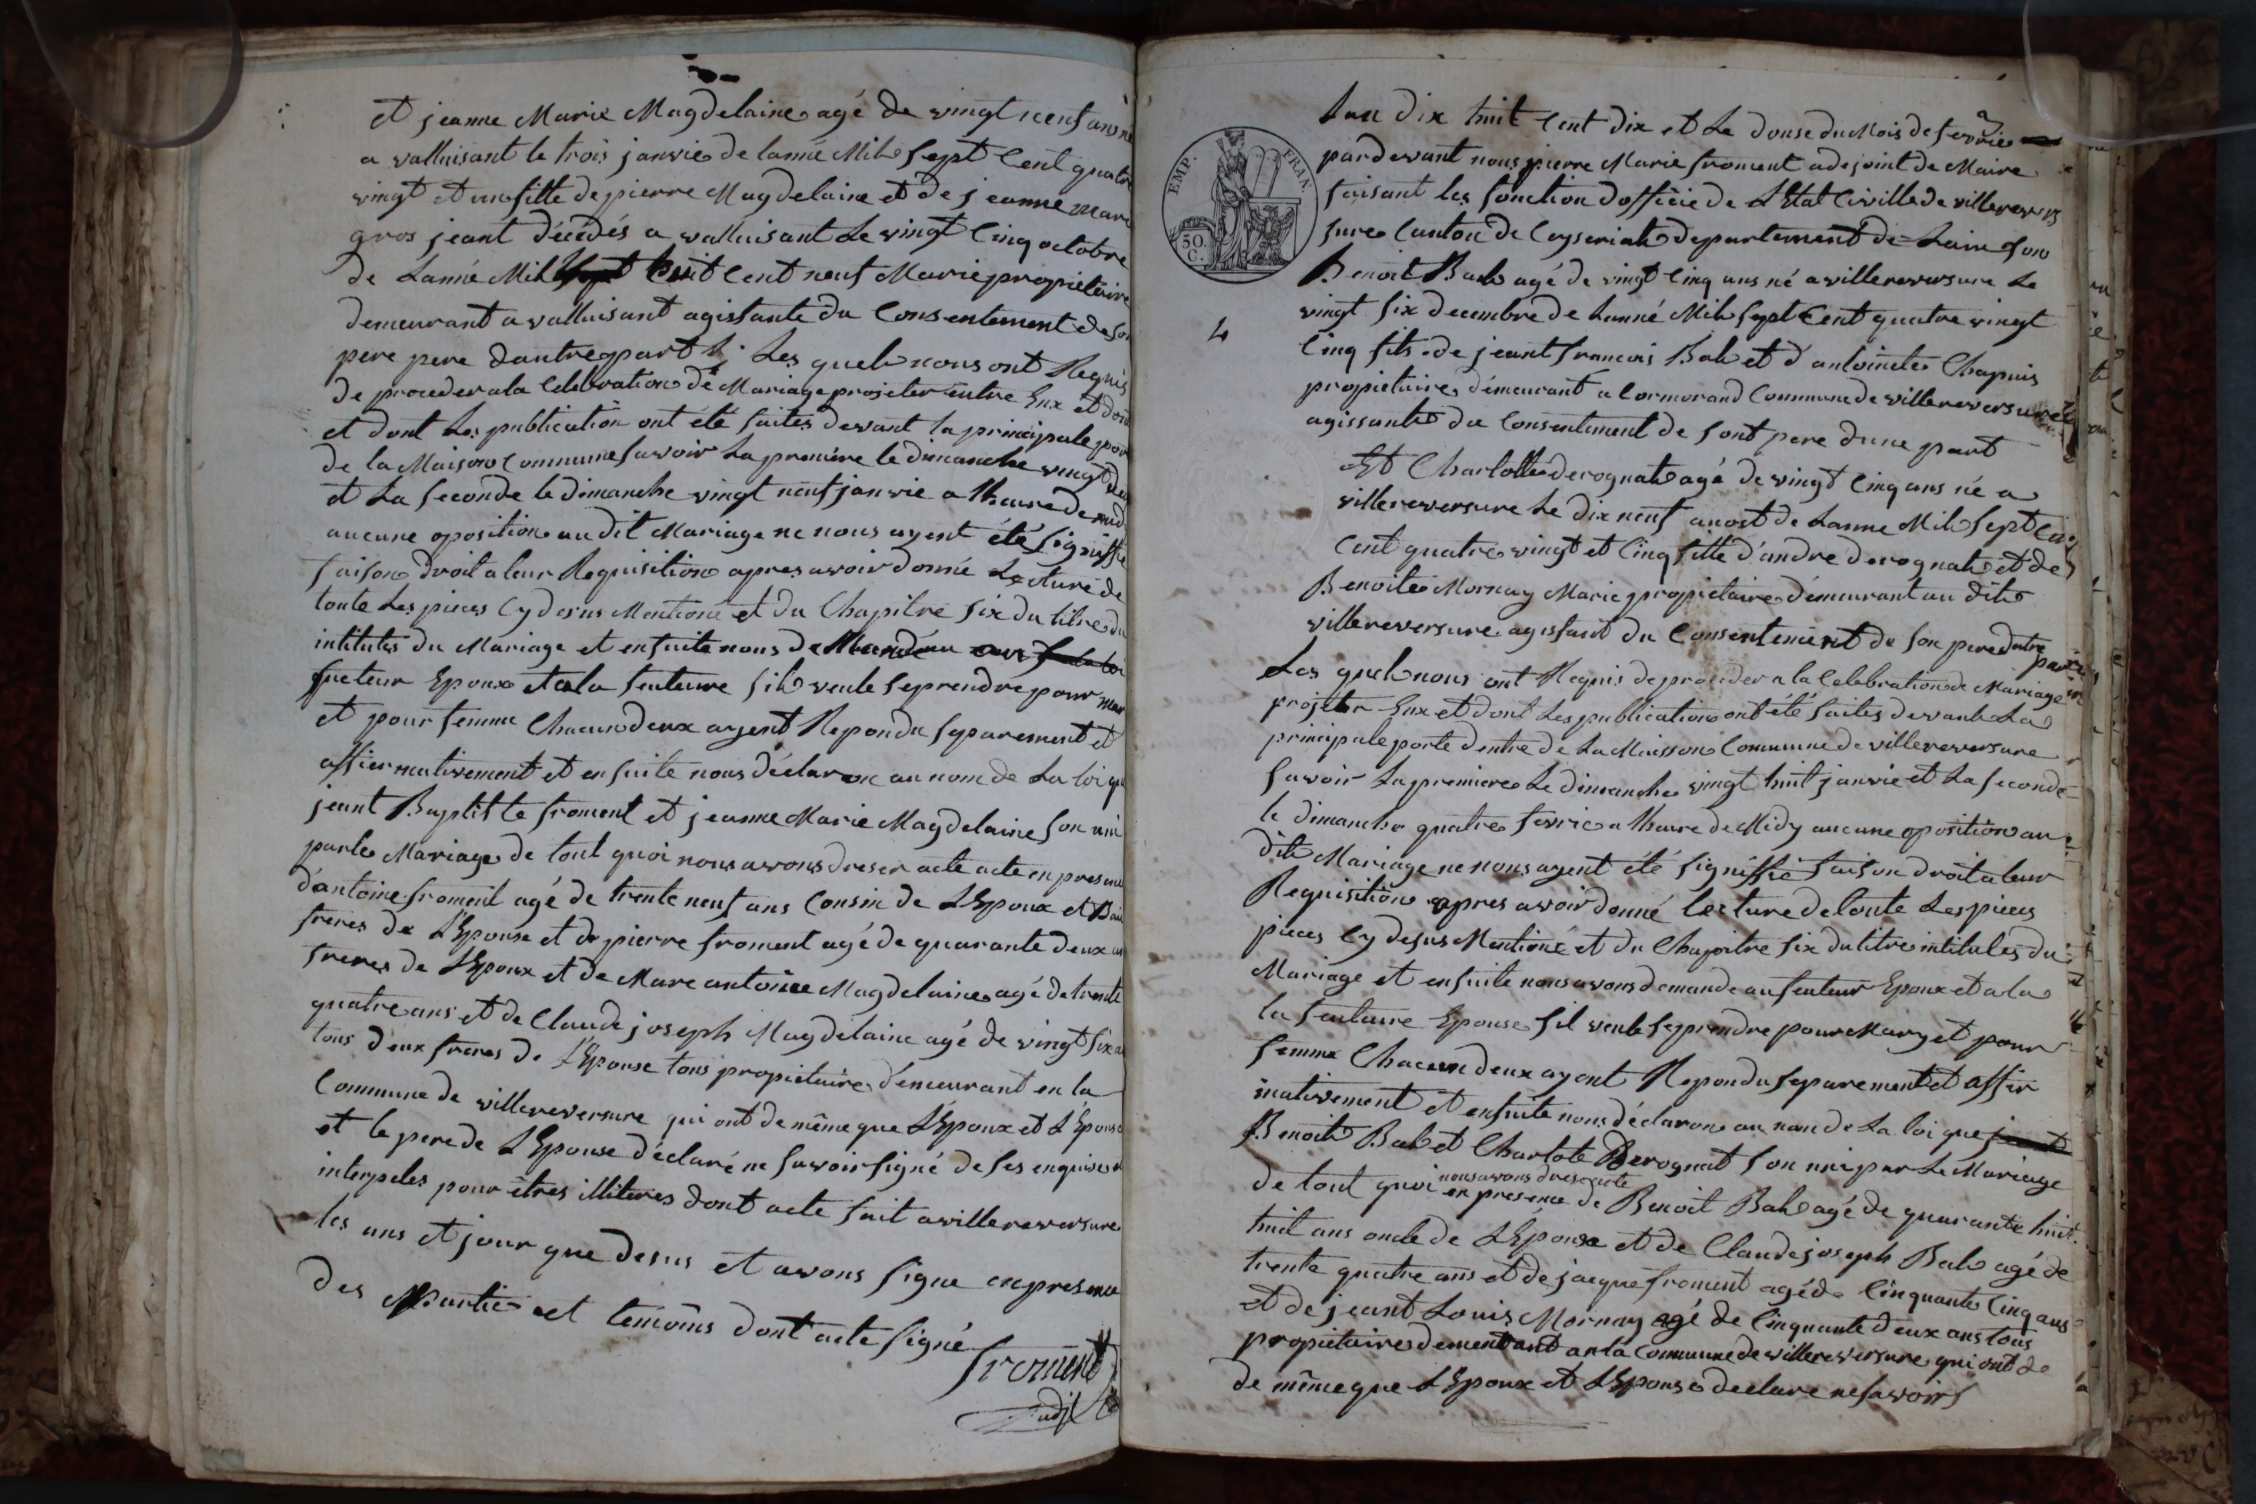 et jeanne Marie Magdelaine agé de vingt neuf ans né
a valluisant le trois janvie de lanné Mil sept Cent quatre
vingt et un fille de pierre Magdelaine et de jeanne marie
gros jeant décédés a valluisant Le vingt Cinq octobre
de Lanné Mil huit Cent neuf Marie propietaire
demeurant a valluisant agissante du Consentement de son
pere pere dautre part Les quels nous ont Requis
de proceder a la Celebration de Mariage projeter entre Eux et dont
et dont Les publication ont été faites devant la principale porte
de la Maison Commune savoir La premiere le dimanche vingt deux
et La seconde le dimanche vingt neuf janvie a lheure de midi
aucune oposition au dit Mariage ne nous ayent été signiffié
faison droit a leur Requisition apres avoir donné Lecture de
toute Les pieces Cy desus Mentioné et du Chapitre six du titre du
intitulés du Mariage et ensuite nous de Mandé au
futeur Epoux et a la futeure sil veule se prendre pour mari
et pour femme Chacun deux ayent Repondu separement et
affiermativement et ensuite nous déclaron au nom de La loi que
jeant Baptiste froment et jeanne Marie Magdelaine son uni
par le Mariage de tout quoi nous avons dreser acte acte en presence
dantoine froment agé de trente neuf ans Cousin de LEpoux et
freres de LEpouse et de pierre froment agé de quarante deux ans
freres de LEpoux et de Marc antoine Magdelaine agé de trente
quatre ans et de Claude joseph Magdelaine agé de vingt six ans
tous deux freres de LEpouse tous propietaire demeurant en la
Commune de villereversure qui ont de même que LEpoux et LEpouse
et le pere de LEpouse déclaré ne savoir signé de ses enquis et
interpeles pour êtres illiteres dont acte fait a villereversure
les ans et jour que desus et avons signe en presence
des Partie et temoins dont acte signé
froment
adjt
EMP. FRAN.
50. C.
4
Lan dix huit Cent dix et Le douse du Mois de fevrie
pardevant nous pierre Marie froment adejoint de Maire
faisant les fonction dofficie de LEtat Civille de villerevers
sure Canton de Ceyseriat departement de Lain son
Benoit Bal agé de vingt Cinq ans né a villereversure Le
vingt six decembre de Lanné Mil sept Cent quatre vingt
Cinq fils de jeant francois Bal et d antoinete Chapuis
propietaire demeurant a Cormorand Commune de villereversure
agissante du Consentement de sont pere dune part
Et Charlotte derognat agé de vingt Cinq ans né a
villereversure Le dix neuf auost de Lanne Mil sept
Cent quatre vingt et Cinq fille d'andre derognat et de
Benoite Mornay Marie propietaire demeurant au dit
villereversure agissant du Consentement de son pere dautre part
Les quel nous ont Requis de proceder a la Celebration de Mariage
projeter Eux et dont Les publication ont été faites devant La
principale porte dentre de La Maisson Commune de villereversure
savoir La premiere Le dimanche vingt huit janvie et La seconde
le dimanche quatre fevrie a lheure de Midy aucune oposition au
dit Mariage ne nous ayent été signiffié faison droit a leur
Requisition apres avoir donné lecture de toute Les pieces
pieces Cy desus Mentioné et du Chapitre six du titre intitulés du
Mariage et ensuite nous avons demande au futeur Epoux et a la
la futeure Epouse sil veule se prendre pour Mary et pour
femme Chacun deux ayent Repondu separement et affir
mativement et ensuite nous déclarons au nom de La loi que
Benoit Bal et Charlote Derognat son uni par Le Mariage
de tout quoi nous avons dreser acte en presence de Benoit Bal agé de quarante huit
huit ans oncle de LEpoux et de Claude joseph Bal agé de
trente quatre ans et de jacque froment agé de Cinquante Cinq ans
et de jeant Louis Mornay agé de Cinquante deux ans tous
propietaire demeurant an la Commune de villereversure qui ont de
de même que LEpoux et LEpouse declare ne savoir